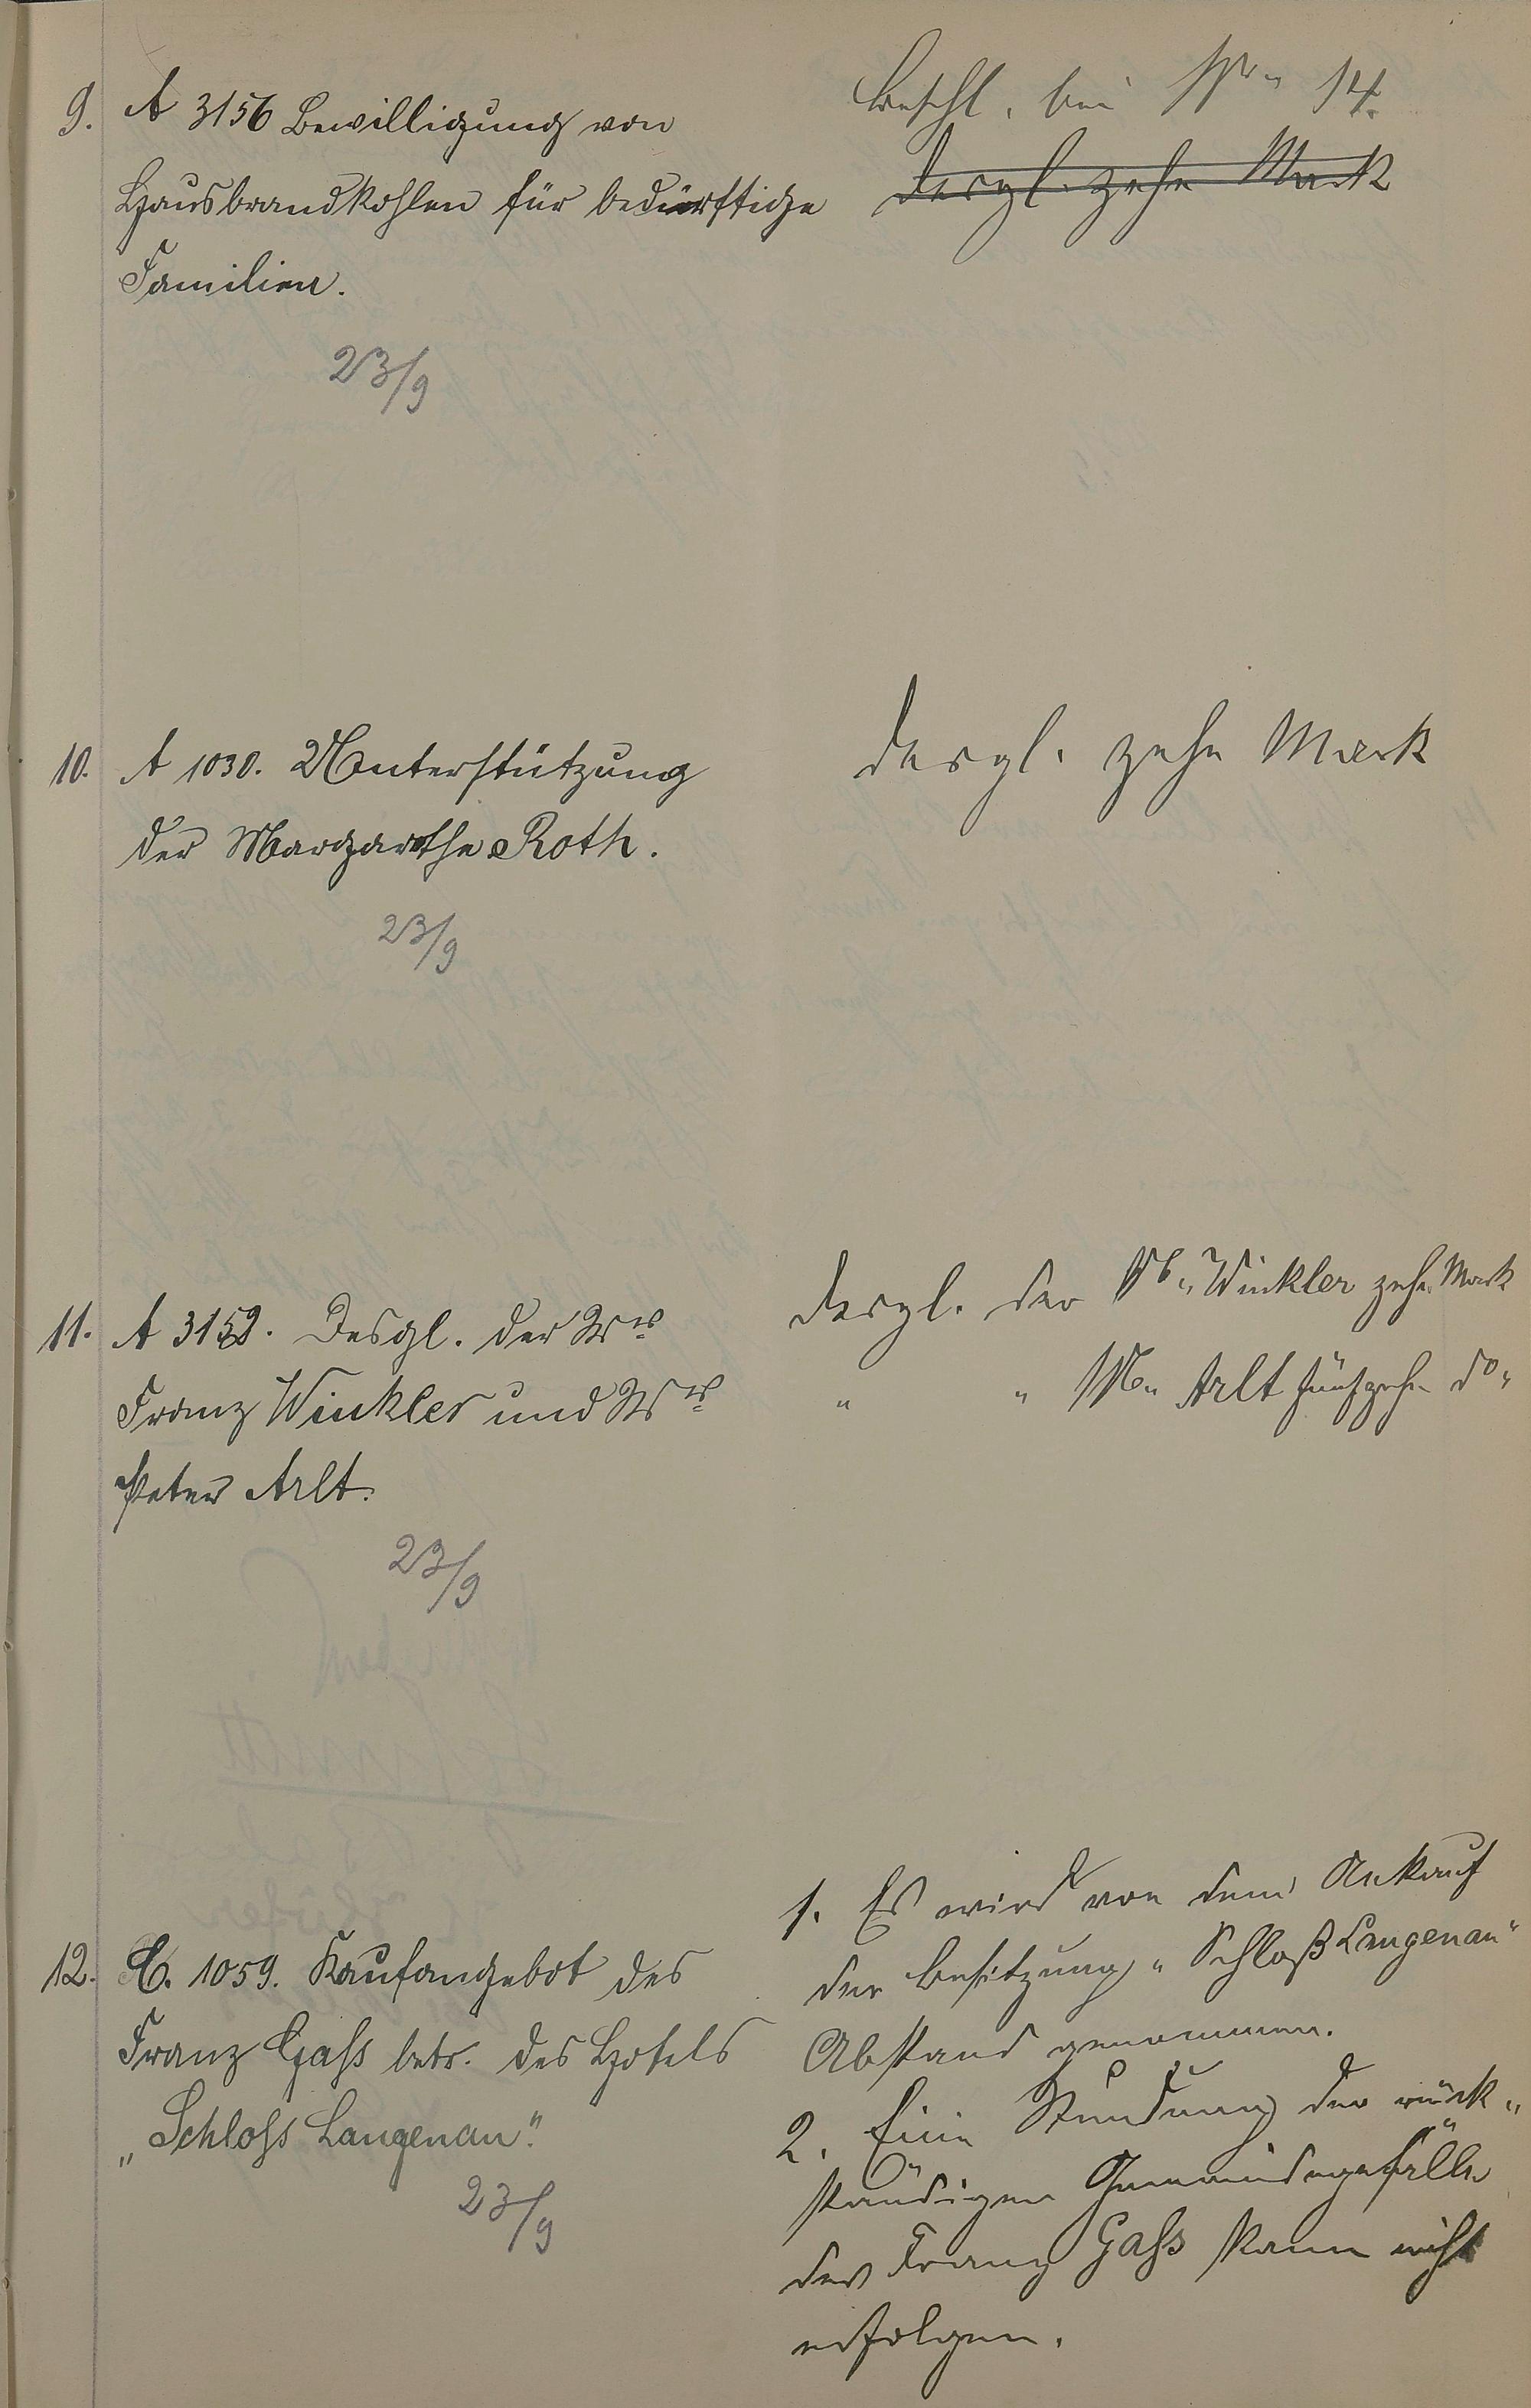 9. A 3156 Bewilligung von
Hausbrandkohlen für bedürftige
Familien.
23/9
Beschl. bei No 14.
desgl. zehn Mark
10. A 1030. Unterstützung
der Margarethe Roth.
23/9
desgl. zehn Mark
11. A 3159. Desgl. der Ww
Franz Winkler und Ww
Peter Arlt.
23/9
desgl. der Ww. Winkler zehn Mark
" " Ww. Arlt fünfzehn do
12. C. 1059. Kaufangebot des
Franz Gaß betr. des Hotels
„Schloß Langenau".
23/9
1. Es wird von dem Ankauf
der Besitzung „Schloß Langenau"
Abstand genommen.
2. Eine Stundung der rück-
ständigen Gemeindegefälle
des Franz Gaß kann nicht
erfolgen.